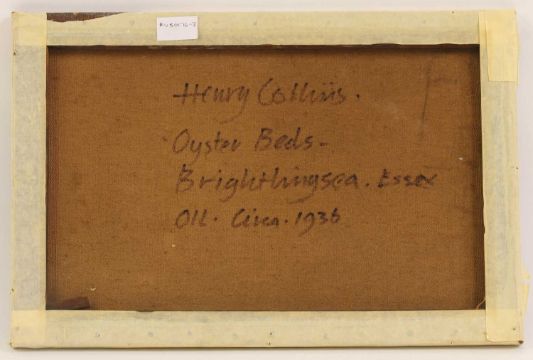 Henry Collins.
Oyster Beds-
Brightlingsea. Essex
OIL. Circa. 1936